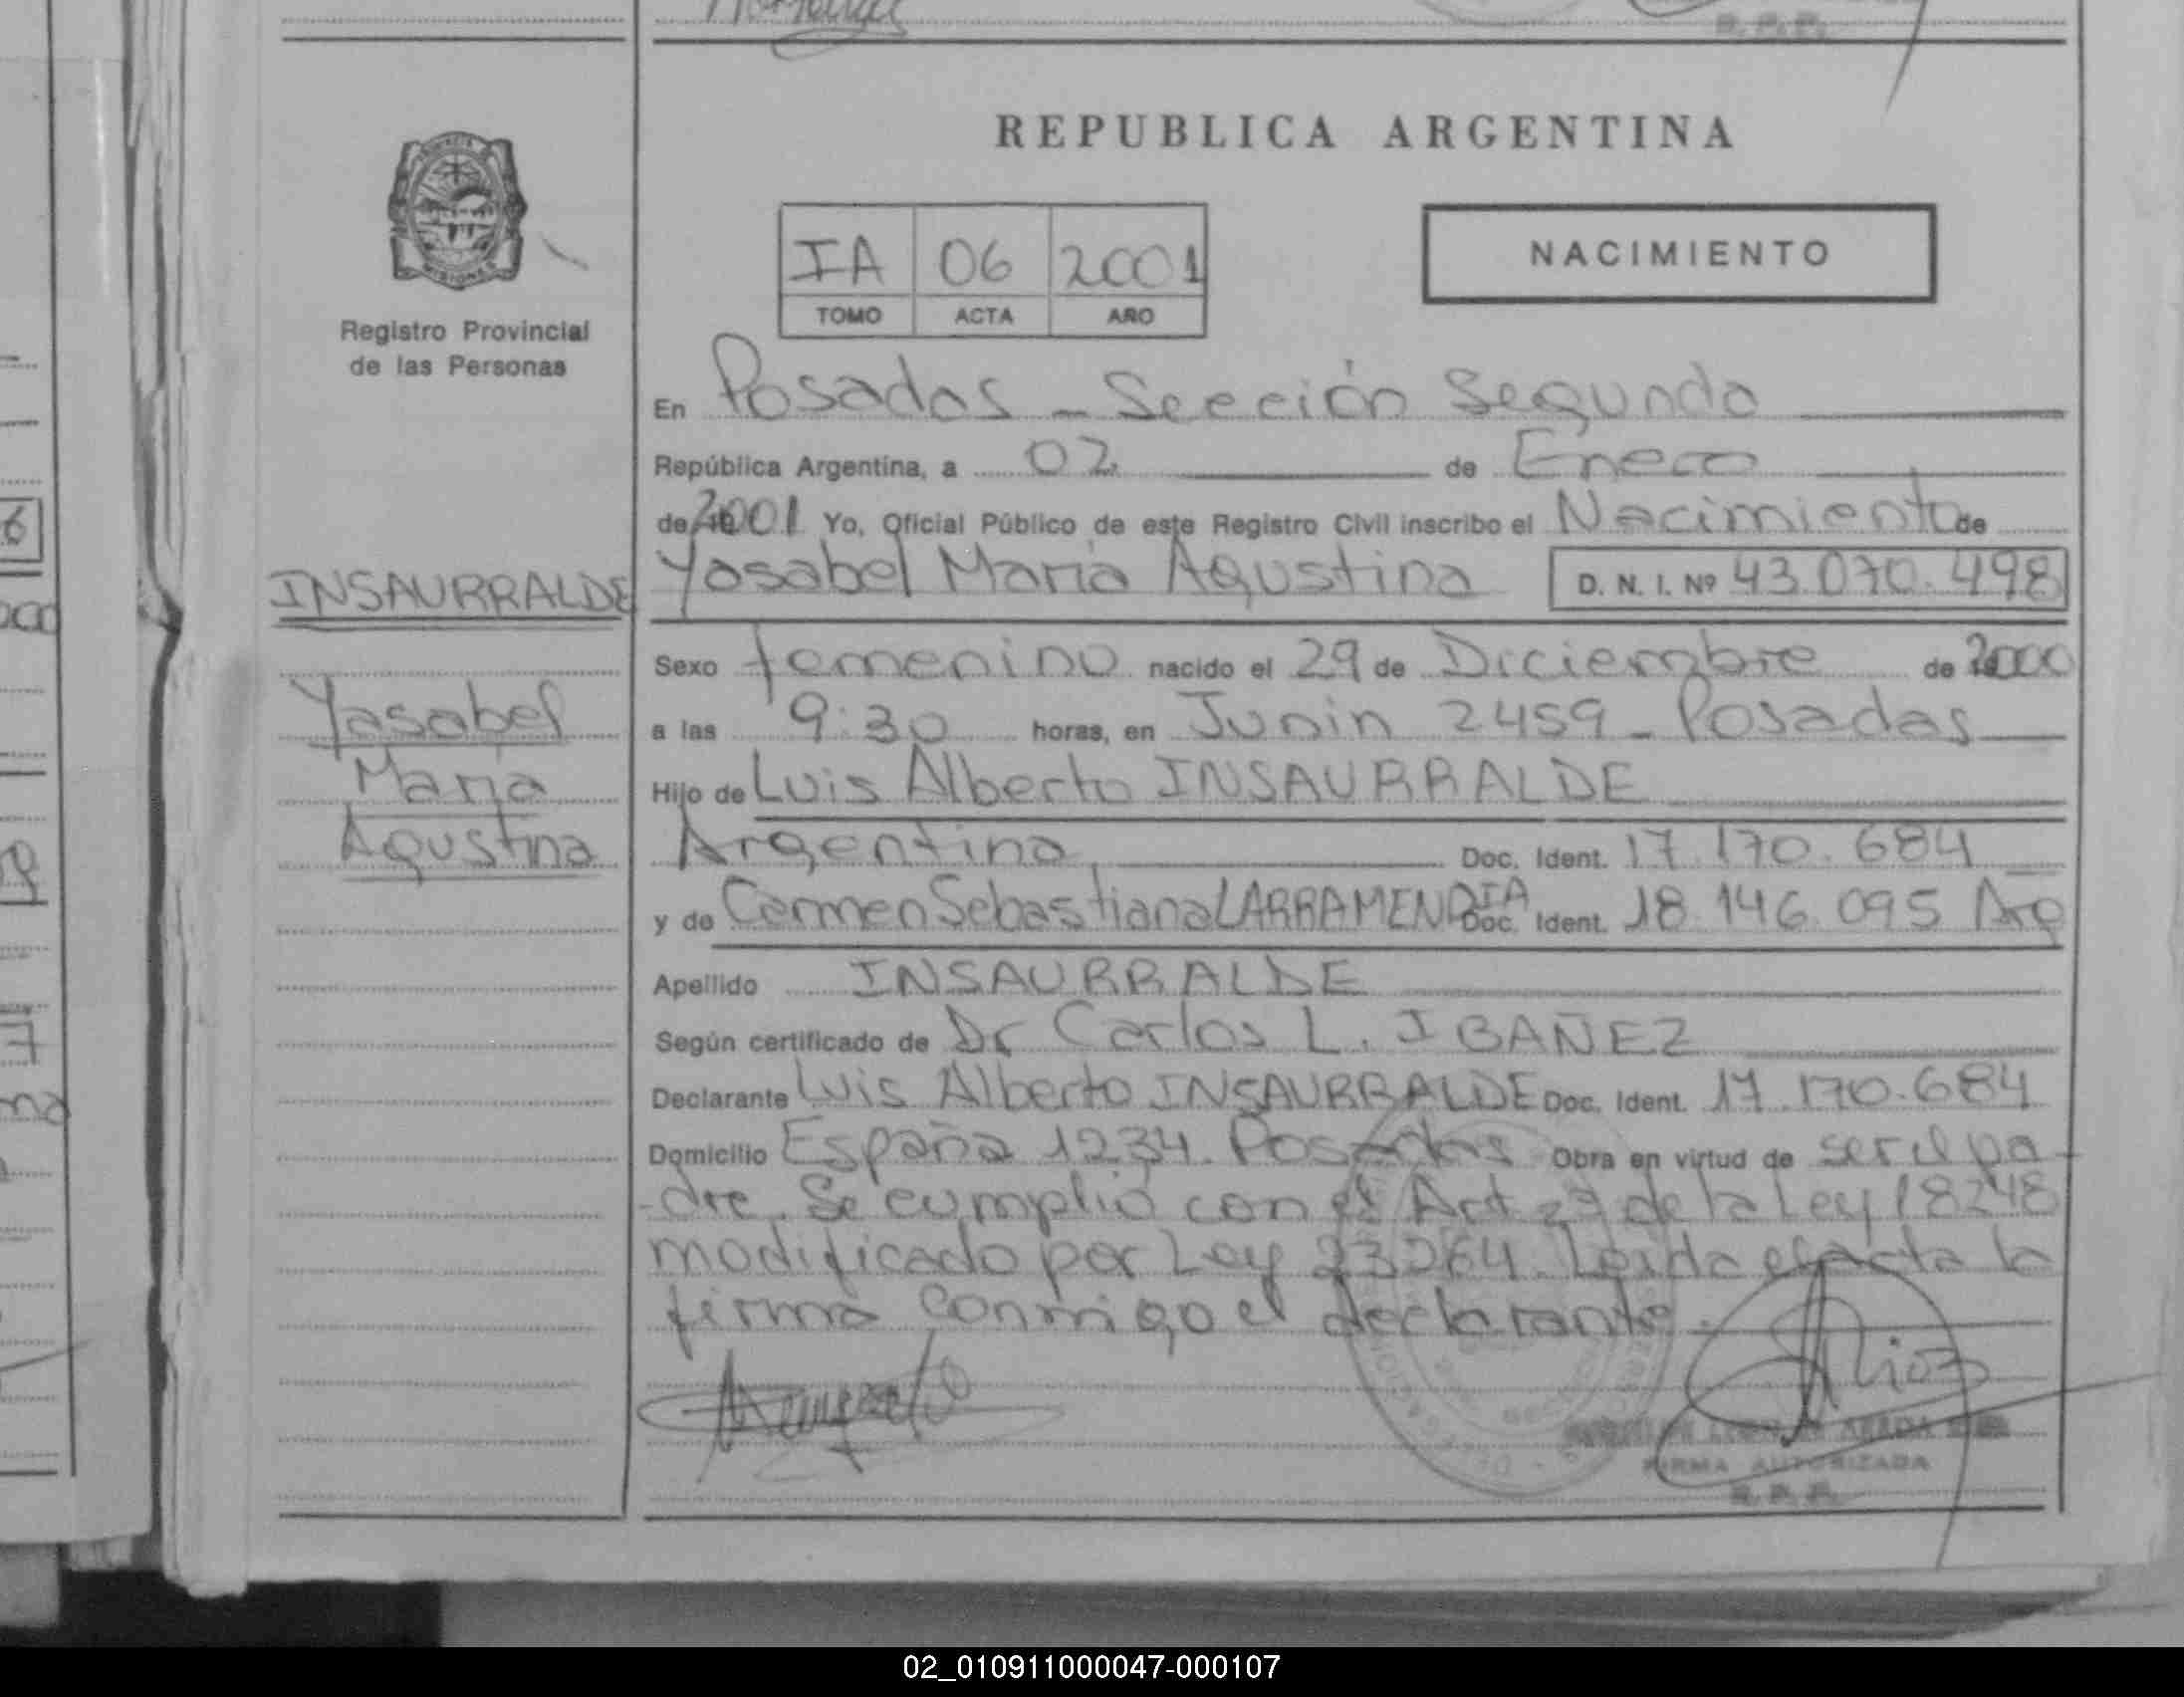 REPUBLICA ARGENTINA
IA 06 2001
TOMO ACTA AÑO
NACIMIENTO
Registro Provincial
de las Personas
INSAURRALDE
Yasabel
María
Agustina
En Posadas - Sección Segunda
República Argentina, a 02 de Enero
de 2001 Yo, Oficial Público de este Registro Civil inscribo el Nacimiento de
Yasabel María Agustina D. N. I. Nº 43.070.498
Sexo femenino nacido el 29 de Diciembre de 2000
a las 9:30 horas, en Junin 2459 - Posadas
Hijo de Luis Alberto INSAURRALDE
Argentino, Doc. Ident. 17.170.684
y de Carmen Sebastiana LARRAMENDIA Doc. Ident. 18.146.095 Arg
Apellido INSAURRALDE
Según certificado de Dr Carlos L. IBAÑEZ
Declarante Luis Alberto INSAURRALDE Doc. Ident. 17.170.684
Domicilio España 1234. Posadas Obra en virtud de ser el pa-
-dre. Se cumplió con el Art 2º de la Ley 18248
modificado por Ley 23264. Leida el acta la
firma conmigo el declarante.
FIRMA AUTORIZADA
R. P. P.
02_010911000047-000107